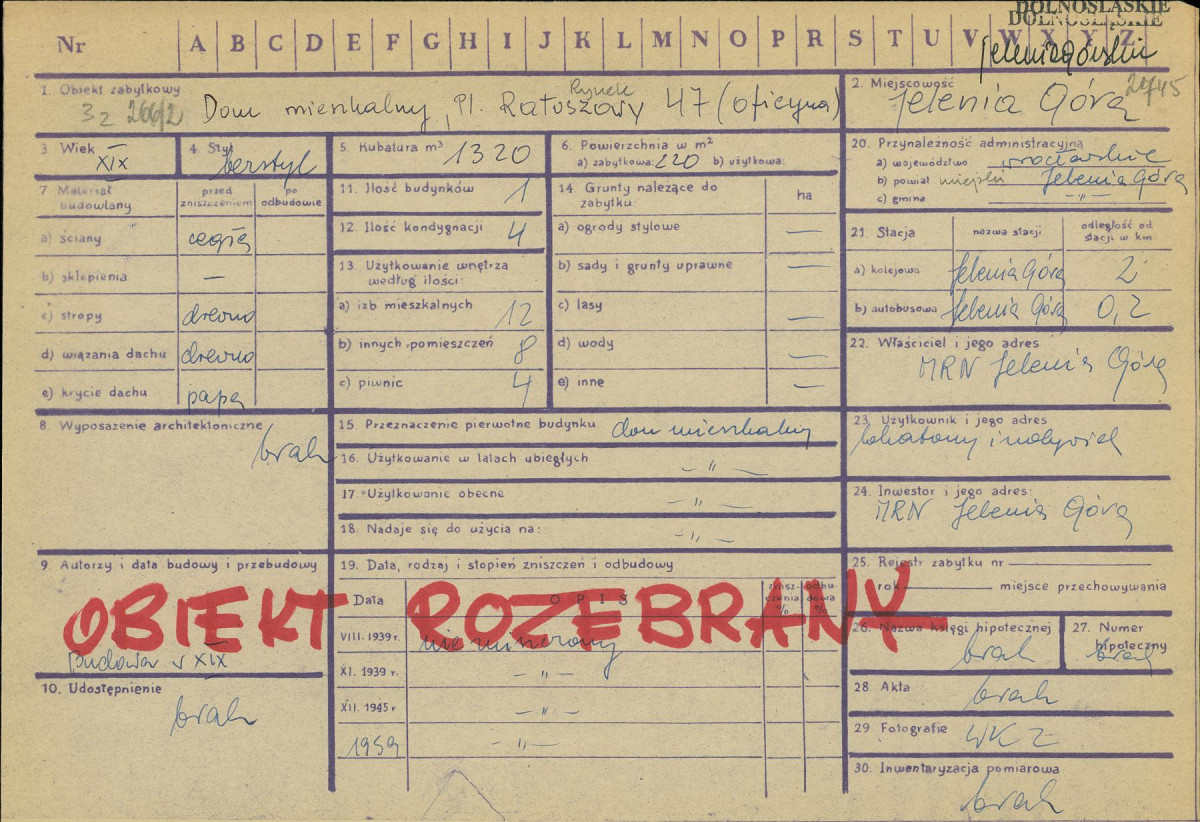 DOLNOŚLĄSKIE
DOLNOŚLĄSKIE
Jeleniogórskie
Nr A B C D E F G H I J K L M N O P R S T U V W X Y Z
1. Obiekt zabytkowy
Rynek
Dom mieszkalny, Pl. Ratuszowy 47 (oficyna)
2. Miejscowość
Jelenia Góra
3 Wiek
XIX
4. Styl
bezstyl
5. Kubatura m³ 1320
6. Powierzchnia w m²
a) zabytkowa: 220 b) użytkowa:
20. Przynależność administracyjna
a) województwo wrocławskie
b) powiat miejski Jelenia Góra
c) gmina —"—
7 Materiał budowlany
przed zniszczeniem
po odbudowie
a) ściany cegła
b) sklepienia —
c) stropy drewno
d) wiązania dachu drewno
e) krycie dachu papa
11. Ilość budynków 1
12. Ilość kondygnacji 4
13. Użytkowanie wnętrza
według ilości:
a) izb mieszkalnych 12
b) innych pomieszczeń 8
c) piwnic 4
14. Grunty należące do
zabytku:
ha
a) ogrody stylowe —
b) sady i grunty uprawne —
c) lasy —
d) wody —
e) inne —
21. Stacja
nazwa stacji
odległość od
stacji w km
a) kolejowa Jelenia Góra 2
b) autobusowa Jelenia Góra 0,2
22. Właściciel i jego adres
MRN Jelenia Góra
8. Wyposażenie architektoniczne
brak
15. Przeznaczenie pierwotne budynku dom mieszkalny
16. Użytkowanie w latach ubiegłych —"—
17. Użytkowanie obecne —"—
18. Nadaje się do użycia na: —"—
23. Użytkownik i jego adres
24. Inwestor i jego adres:
MRN Jelenia Góra
9. Autorzy i data budowy i przebudowy
OBIEKT ROZEBRANY
Budowa w XIX
10. Udostępnienie
brak
19. Data, rodzaj i stopień zniszczeń i odbudowy
Data
OPIS
znisz-
czenia
%
odbu
dowa
%
VIII. 1939 r. nie niszczony
XI. 1939 r. —"—
XII. 1945 r —"—
1959 —"—
25. Rejestr zabytku nr
rok miejsce przechowywania
26. Nazwa księgi hipotecznej
brak
27. Numer
hipoteczny
brak
28. Akta brak
29 Fotografie WKZ
30. Inwentaryzacja pomiarowa
brak